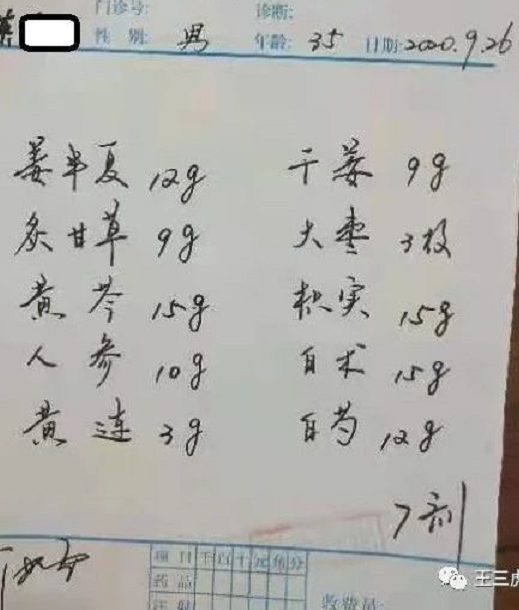 门诊号: 诊断:
性 别: 男 年龄: 35 日期: 2020.9.26
姜半夏 12g 干姜 9g
炙甘草 9g 大枣 3枚
黄芩 15g 枳实 15g
人参 10g 白术 15g
黄连 3g 白芍 12g
7剂
项 目 千 百 十 元 角 分
药 品
注 射 收费员:
王三虎